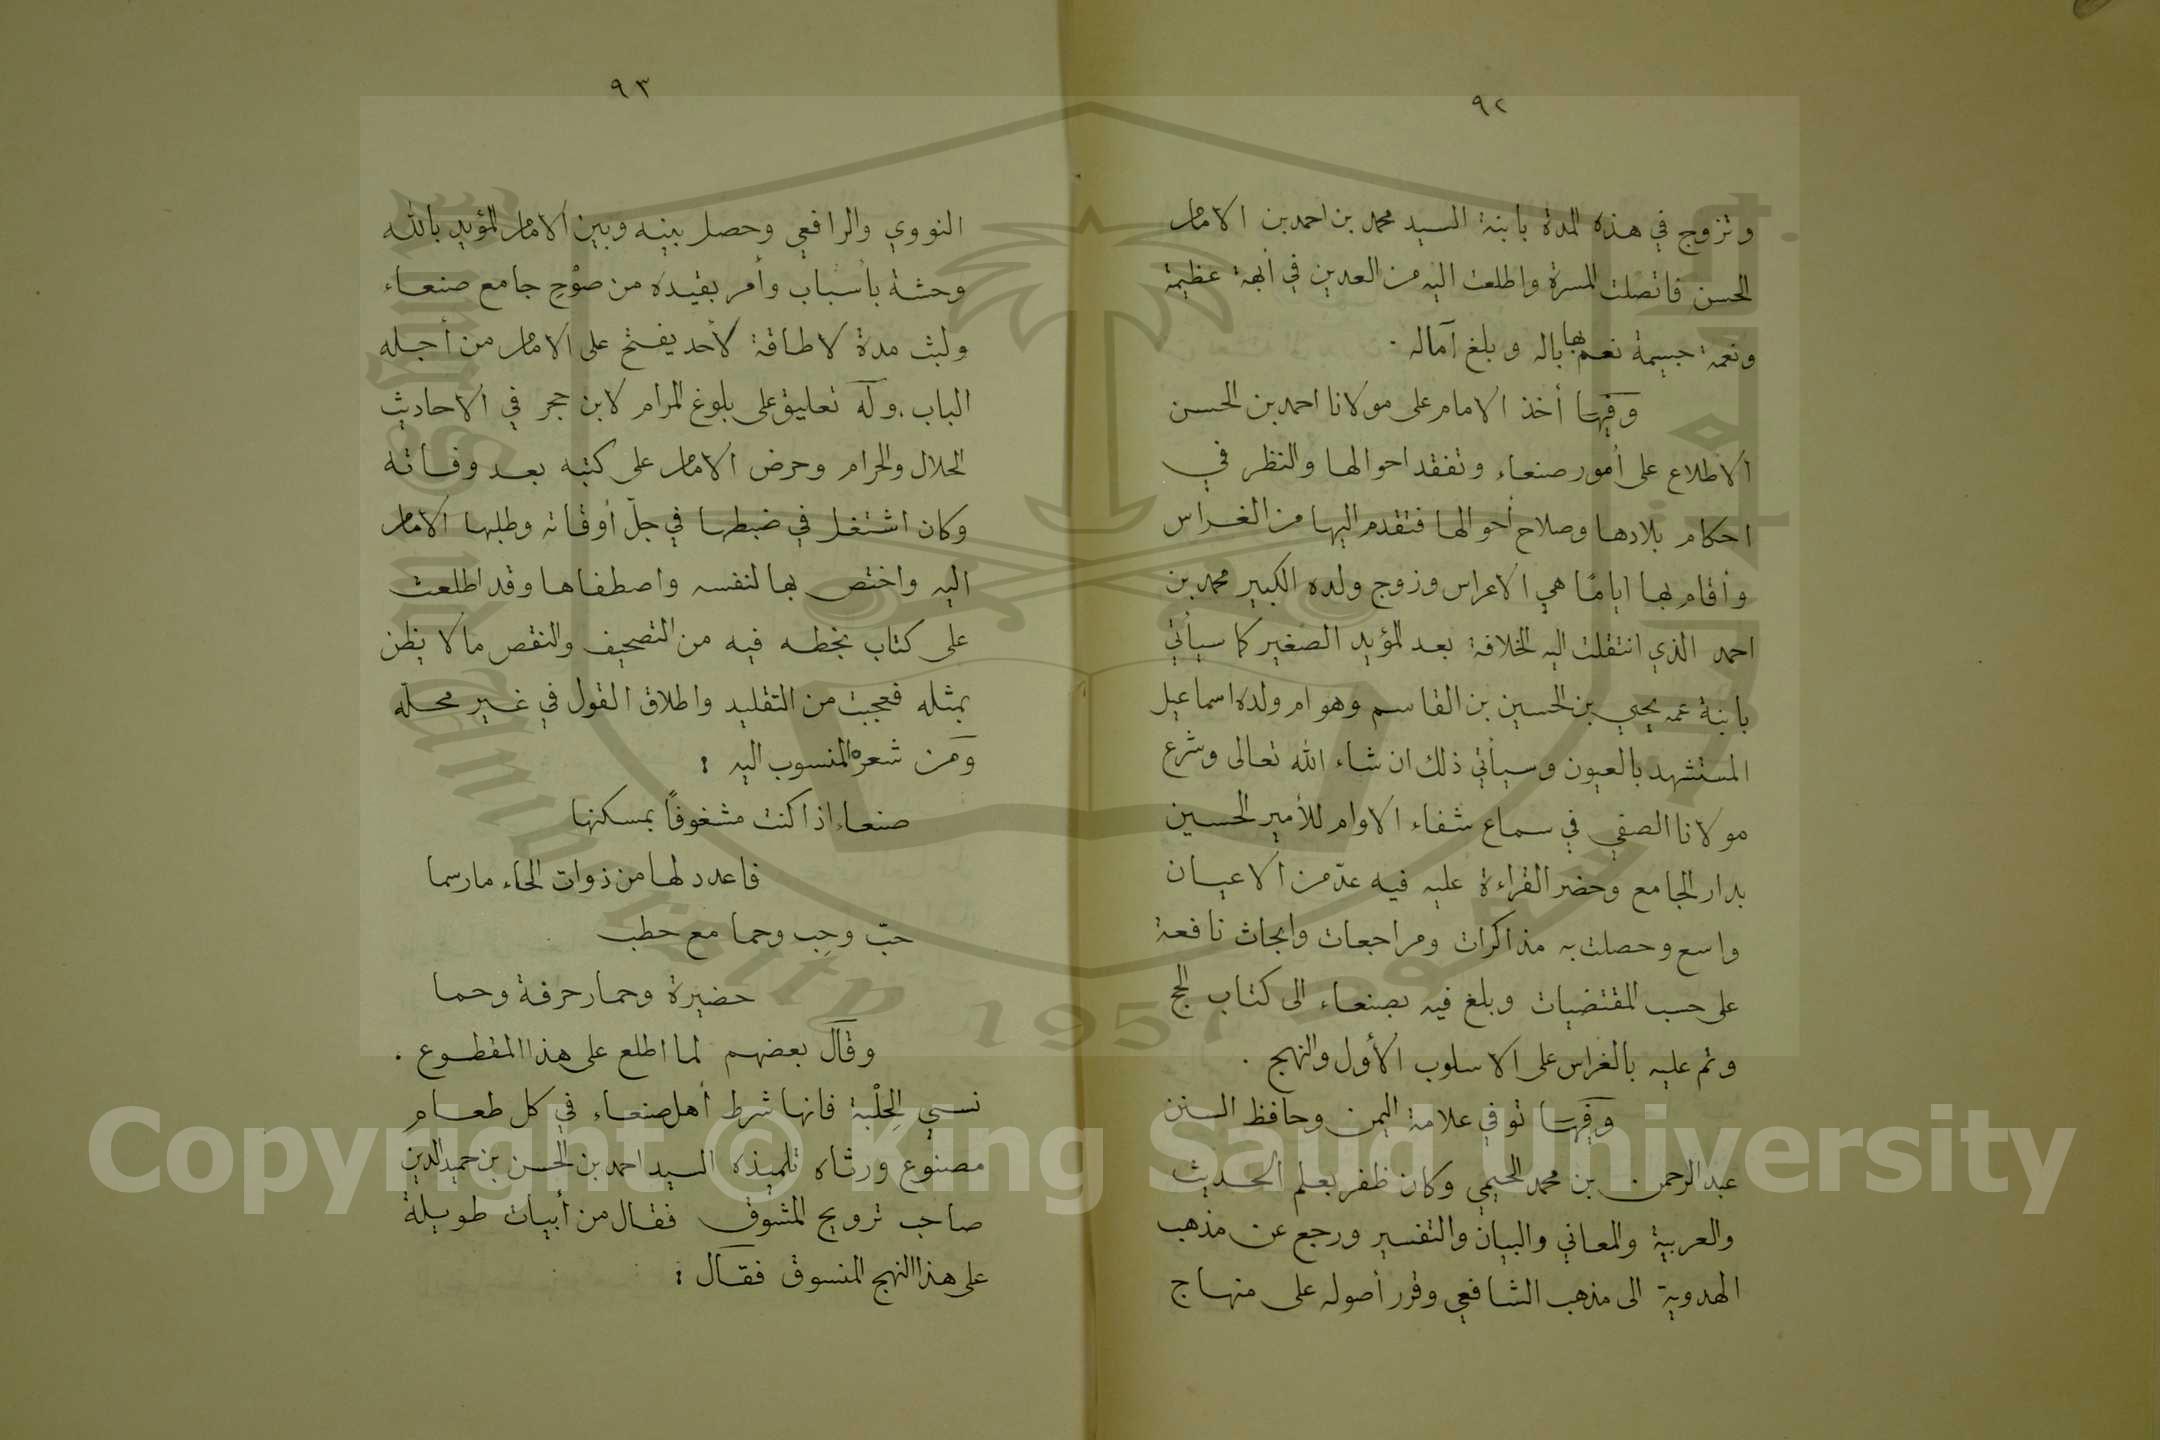 ٩٢
وتزوج في هذه المدة بابنة السيد محمد بن احمد بن الامام
الحسن فاتصلت المسرة واطلعت اليه من العدين في أبهة عظيمة
ونعمة جسيمة نعم بها باله وبلغ آماله .
وفيها أخذ الامام على مولانا احمد بن الحسن
الاطلاع على أمور صنعاء وتفقد احوالها والنظر في
احكام بلادها وصلاح أحوالها فتقدم اليها من الغراس
وأقام بها اياما هي الاعراس وزوج ولده الكبير محمد بن
احمد الذي انتقلت اليه الخلافة بعد المؤيد الصغير كما سيأتي
بابنة عمه يحيي بن الحسين بن القاسم وهو ام ولده اسماعيل
المستشهد بالعيون وسيأتي ذلك ان شاء الله تعالى وشرع
مولانا الصفي في سماع شفاء الاوام للأمير الحسين
بدار الجامع وحضر القراءة عليه فيه عدّ من الاعيان
واسع وحصلت به مذاكرات ومراجعات وابحاث نافعة
على حسب المقتضيات وبلغ فيه بصنعاء الى كتاب الحج
وتم عليه بالغراس على الاسلوب الأول والنهج .
وفيها توفي علامة اليمن وحافظ السنن
عبد الرحمن بن محمد الحيمي وكان ظفر بعلم الحديث
والعربية والمعاني والبيان والتفسير ورجع عن مذهب
الهدوية الى مذهب الشافعي وقرر أصوله على منهاج
٩٣
النووي والرافعي وحصل بينه وبين الامام المؤيد بالله
وحشة بأسباب وأمر بقيده من صَوْح جامع صنعاء
ولبث مدة لا طاقة لأحد يفتح على الامام من أجله
الباب . وله تعاليق على بلوغ المرام لابن حجر في الاحاديث
الحلال والحرام وحرض الامام على كتبه بعد وفاته
وكان اشتغل في ضبطها في جلّ أوقاته وطلبها الامام
اليه واختص بها لنفسه واصطفاها وقد اطلعت
على كتاب بخطه فيه من التصحيف والنقص ما لا يظن
بمثله فعجبت من التقليد واطلاق القول في غير محله
ومن شعره المنسوب اليه :
صنعاء اذا كنت مشغوفًا بمسكنها
فاعدد لها من ذوات الحاء ما رسما
حبّ وحِب وحما مع حطب
حضيرة وحمار حرفة وحما
وقال بعضهم لما اطلع على هذا المقطوع .
نسي الحِلْبة فانها شرط أهل صنعاء في كل طعام
مصنوع ورثاه تلميذه السيد احمد بن الحسن بن حميد الدين
صاحب ترويح المشوق فقال من أبيات طويلة
على هذا النهج المنسوق فقال :
Copyright © King Saud University
King Saud University 1957